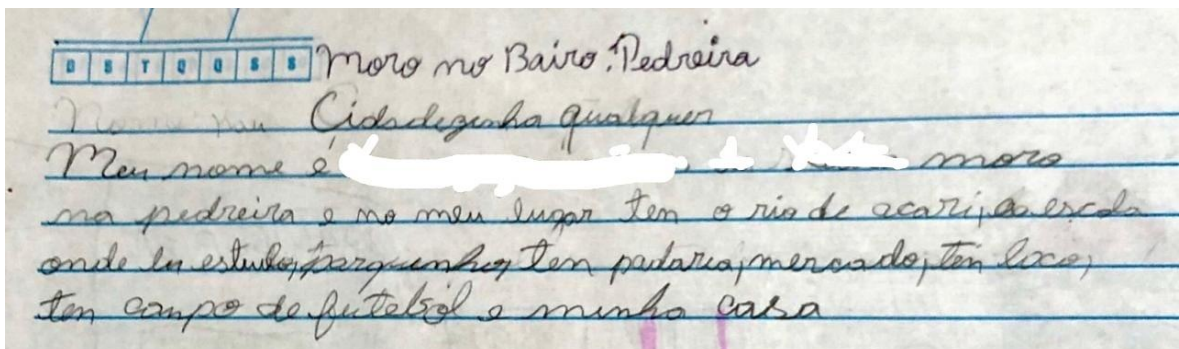 D S T Q Q S S Moro no Bairo: Pedreira
Cidadezinha qualquer
Meu nome é moro
na pedreira e no meu lugar ten o rio de acari, a escola
onde eu estudo, parquinho, ten padaria, mercado, ten
ten campo de futebol e minha casa